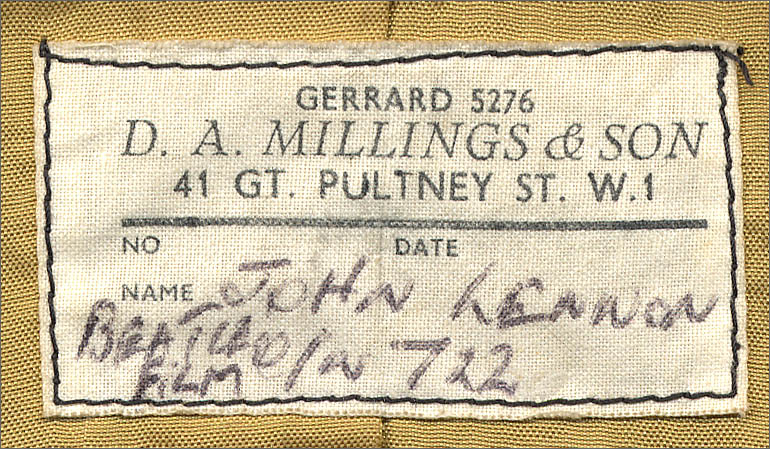 GERRARD 5276
D. A. MILLINGS & SON
41 GT. PULTNEY ST. W.1
NO DATE
NAME JOHN LENNON
BEATLE 722
FILM